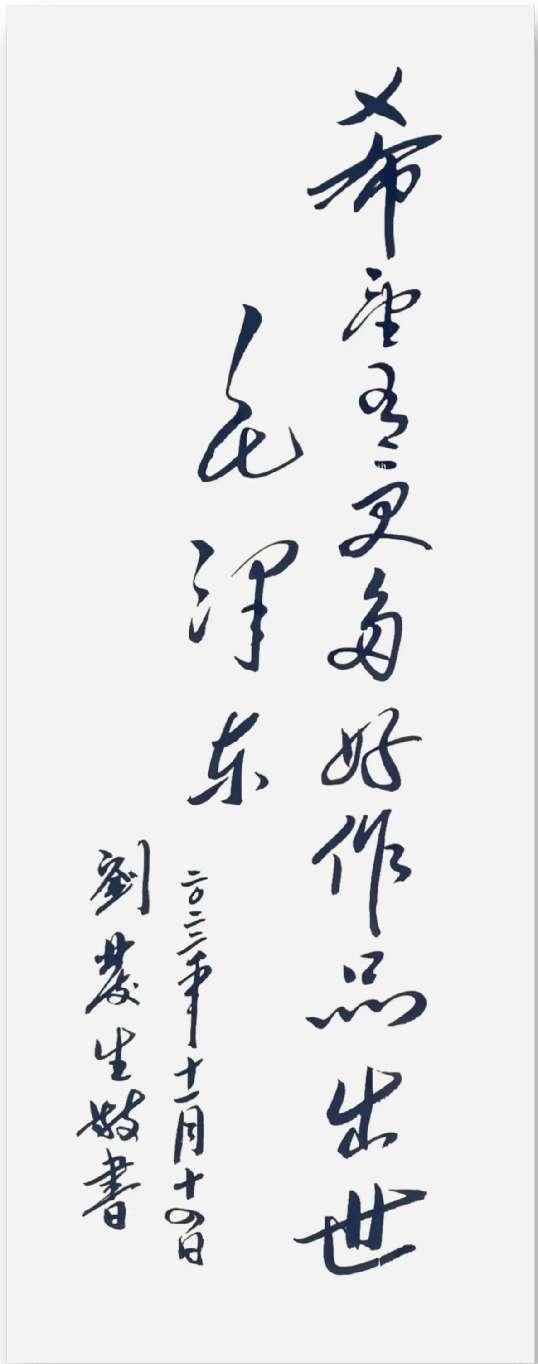 希望有更多好作品出世
毛泽东
二〇二三年十一月十四日
劉農生敬書